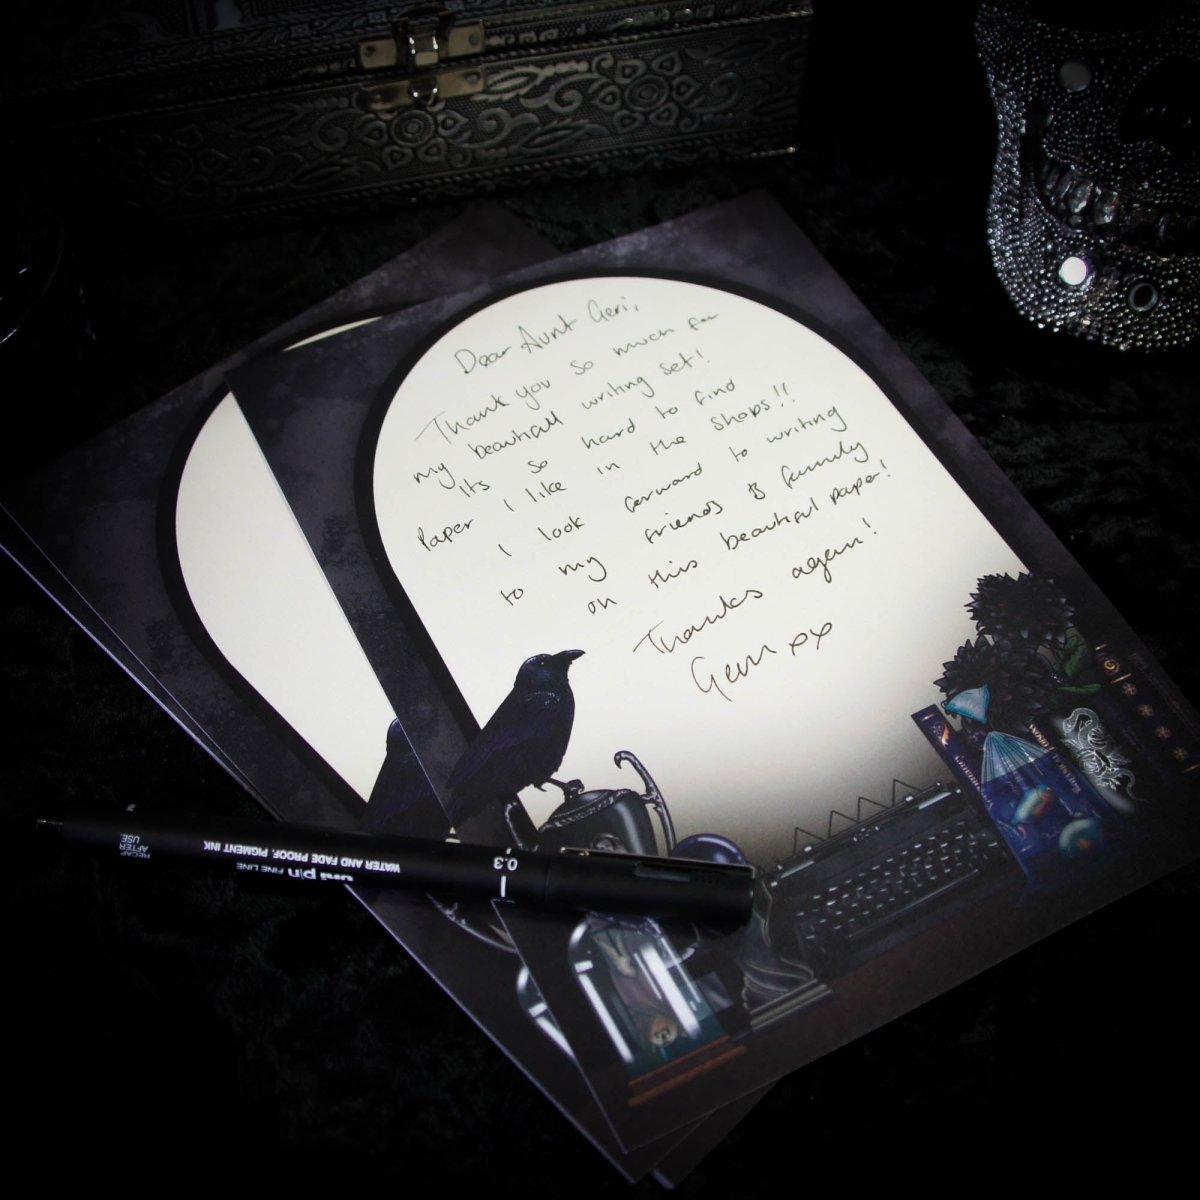 Dear Aunt Geri,
Thank you so much for
my beautifull writing set!
Its so hard to find
Paper I like in the Shops!!
I look forward to writing
to my friends & family
on this beautiful paper!
Thanks again!
Gem xx
0.3
uni pin FINE LINE
WATER AND FADE PROOF, PIGMENT INK
RECAP
AFTER
USE.